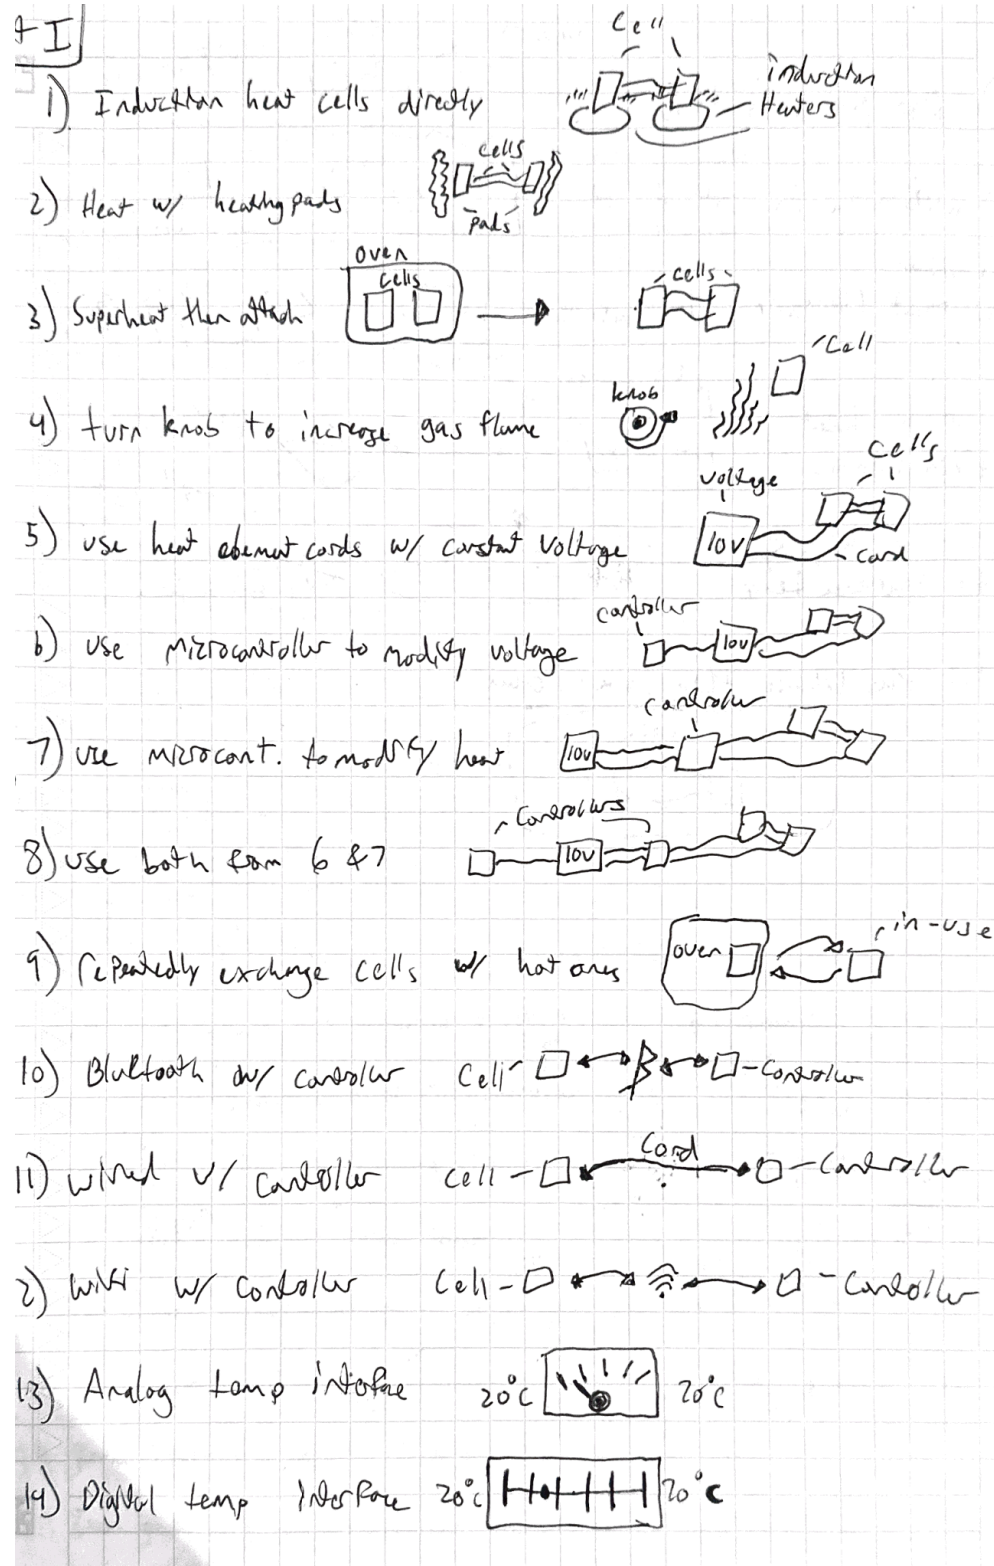 + I
Cell
1) Induction heat cells directly
induction
Heaters
cells
2) Heat w/ heating pads
pads
oven
cells
cells
3) Superheat then attach
Cell
knob
4) turn knob to increase gas flame
Cells
voltage
5) use heat element cords w/ constant voltage
10V
cord
controller
6) use microcontroller to modify voltage
10V
controller
7) use microcont. to modify heat
10V
Controllers
8) use both from 6 & 7
10V
in-use
9) repeatedly exchange cells w/ hot ones
oven
10) Bluetooth w/ controller Cell Controller
Cord
11) wired w/ controller cell Controller
2) wifi w/ controller Cell Controller
13) Analog temp interface 20°C 20°C
14) Digital temp interface 20°C 20°C